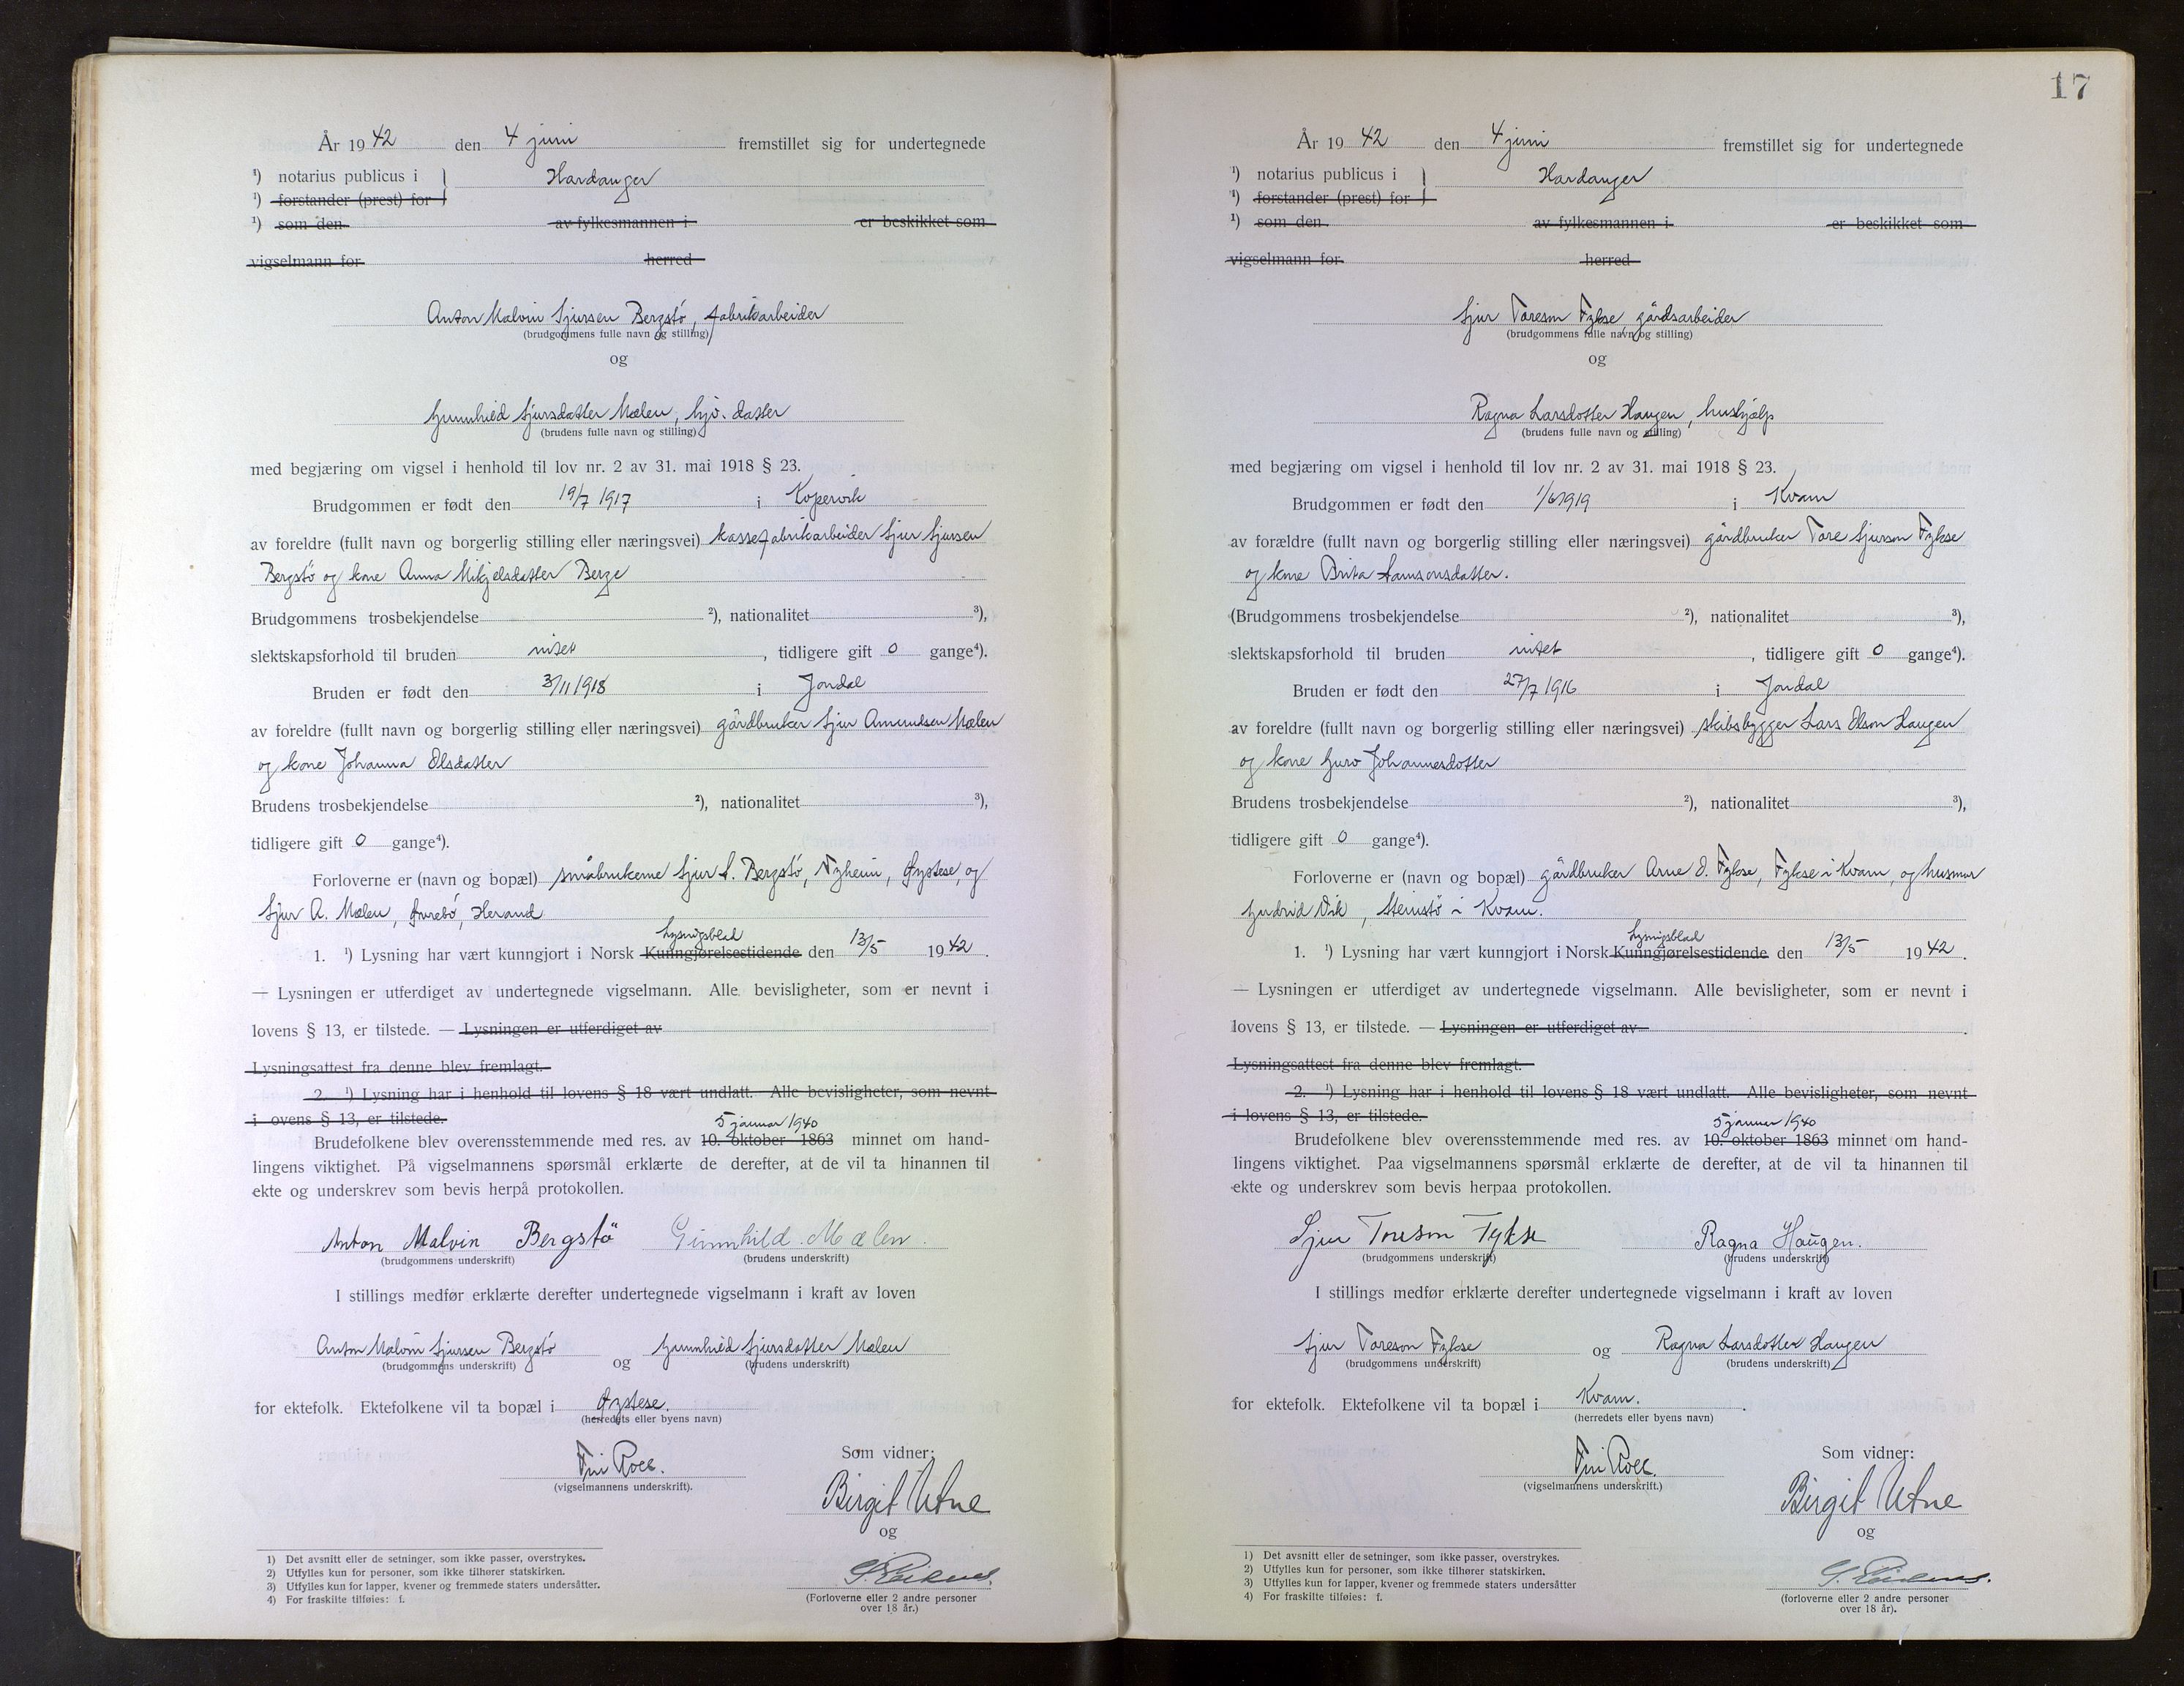 År 1942 den 4 juni fremstillet sig for undertegnede
¹) notarius publicus i } Hardanger
¹) forstander (prest) for
¹) som den av fylkesmannen i er beskikket som
vigselmann for herred
Anton Malvin Sjursen Bergstö, fabrikarbeider
(brudgommens fulle navn og stilling)
og
Gunnhild Sjursdatter Mælen, hjv. datter
(brudens fulle navn og stilling)
med begjæring om vigsel i henhold til lov nr. 2 av 31. mai 1918 § 23.
Brudgommen er født den 19/7 1917 i Kopervik
av foreldre (fullt navn og borgerlig stilling eller næringsvei) kassefabrikarbeider Sjur Sjursen
Bergstö og kone Anna Mikjelsdatter Berge
Brudgommens trosbekjendelse ²), nationalitet ³),
slektskapsforhold til bruden intet, tidligere gift 0 gange⁴).
Bruden er født den 3/11 1918 i Jondal
av foreldre (fullt navn og borgerlig stilling eller næringsvei) gårdbruker Sjur Amundsen Mælen
og kone Johanna Olsdatter
Brudens trosbekjendelse ²), nationalitet ³),
tidligere gift 0 gange⁴).
Forloverne er (navn og bopæl) småbrukerne Sjur S. Bergstö, Nyheim, Øystese, og
Sjur A. Mælen, Øvrebö, Herand
Lysingsblad
1. ¹) Lysning har vært kunngjort i Norsk Kunngjørelsestidende den 13/5 1942.
— Lysningen er utferdiget av undertegnede vigselmann. Alle bevisligheter, som er nevnt i
lovens § 13, er tilstede. — Lysningen er utferdiget av
Lysningsattest fra denne blev fremlagt.
2. ¹) Lysning har i henhold til lovens § 18 vært undlatt. Alle bevisligheter, som nevnt
i ovens § 13, er tilstede.
5 januar 1940
Brudefolkene blev overensstemmende med res. av 10. oktober 1863 minnet om hand-
lingens viktighet. På vigselmannens spørsmål erklærte de derefter, at de vil ta hinannen til
ekte og underskrev som bevis herpå protokollen.
Anton Malvin Bergstö Gunnhild Mælen.
(brudgommens underskrift) (brudens underskrift)
I stillings medfør erklærte derefter undertegnede vigselmann i kraft av loven
Anton Malvin Sjursen Bergstö og Gunnhild Sjursdatter Mælen
(brudgommens underskrift) (brudens underskrift)
for ektefolk. Ektefolkene vil ta bopæl i Øystese.
(herredets eller byens navn)
Som vidner:
Fin Roll.
(vigselmannens underskrift).
Birgit Utne
og
(Forloverne eller 2 andre personer
over 18 år.)
1) Det avsnitt eller de setninger, som ikke passer, overstrykes.
2) Utfylles kun for personer, som ikke tilhører statskirken.
3) Utfylles kun for lapper, kvener og fremmede staters undersåtter.
4) For fraskilte tilføies: f.
17
År 1942 den 4 juni fremstillet sig for undertegnede
¹) notarius publicus i } Hardanger
¹) forstander (prest) for
¹) som den av fylkesmannen i er beskikket som
vigselmann for herred
Sjur Toreson Fykse, gårdsarbeider
(brudgommens fulle navn og stilling)
og
Ragna Larsdotter Haugen, hushjælp
(brudens fulle navn og stilling)
med begjæring om vigsel i henhold til lov nr. 2 av 31. mai 1918 § 23.
Brudgommen er født den 1/6 1919 i Kvam
av forældre (fullt navn og borgerlig stilling eller næringsvei) gårdbruker Tore Sjurson Fykse
og kone Brita Samsonsdatter.
(Brudgommens trosbekjendelse ²), nationalitet ³),
slektskapsforhold til bruden intet, tidligere gift 0 gange⁴).
Bruden er født den 27/7 1916 i Jondal
av foreldre (fullt navn og borgerlig stilling eller næringsvei) skibsbygger Lars Olson Haugen
og kone Guro Johannesdotter
Brudens trosbekjendelse ²), nationalitet ³),
tidligere gift 0 gange⁴).
Forloverne er (navn og bopæl) gårdbruker Arne O. Fykse, Fykse i Kvam, og husmor
Gudrid Vik, Steinstö i Kvam.
Lysingsblad
1. ¹) Lysning har vært kunngjort i Norsk Kunngjørelsestidende den 13/5 1942.
— Lysningen er utferdiget av undertegnede vigselmann. Alle bevisligheter, som er nevnt i
lovens § 13, er tilstede. — Lysningen er utferdiget av
Lysningsattest fra denne blev fremlagt.
2. ¹) Lysning har i henhold til lovens § 18 vært undlatt. Alle bevisligheter, som nevnt
i lovens § 13, er tilstede.
5 januar 1940
Brudefolkene blev overensstemmende med res. av 10. oktober 1863 minnet om hand-
lingens viktighet. Paa vigselmannens spørsmål erklærte de derefter, at de vil ta hinannen til
ekte og underskrev som bevis herpaa protokollen.
Sjur Toreson Fykse Ragna Haugen.
(brudgommens underskrift) (brudens underskrift)
I stillings medfør erklærte derefter undertegnede vigselmann i kraft av loven
Sjur Toreson Fykse og Ragna Larsdotter Haugen
(brudgommens underskrift) (brudens underskrift)
for ektefolk. Ektefolkene vil ta bopæl i Kvam.
(herredets eller byens navn)
Som vidner:
Fin Roll.
(vigselmannens underskrift.)
Birgit Utne
og
(forloverne eller 2 andre personer
over 18 år).
1) Det avsnitt eller de setninger, som ikke passer, overstrykes.
2) Utfylles kun for personer, som ikke tilhører statskirken.
3) Utfylles kun for lapper, kvener og fremmede staters undersåtter
4) For fraskilte tilføies: f.